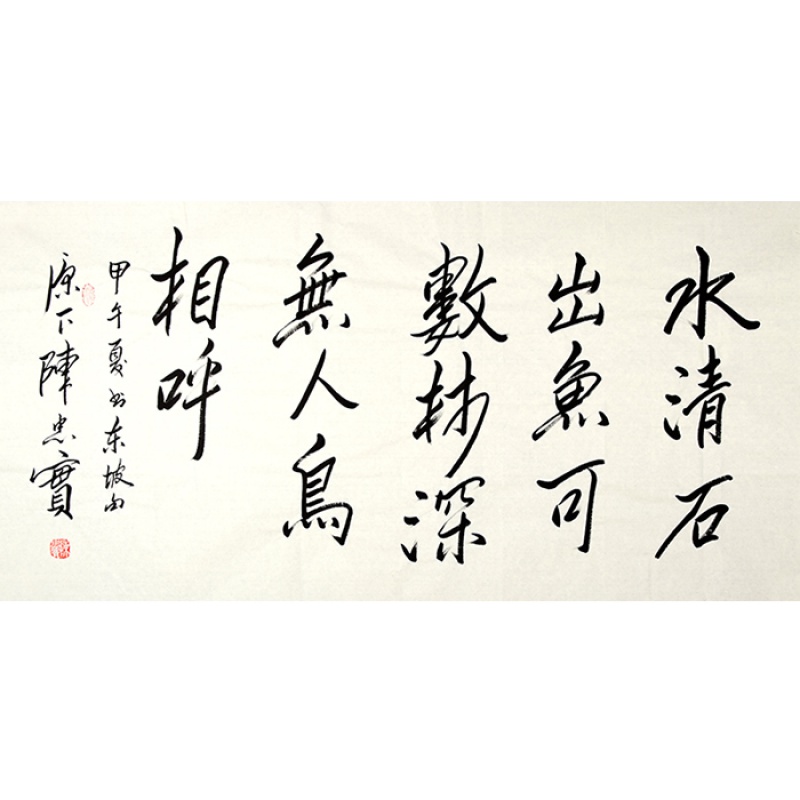 水清石
出魚可
數林深
無人鳥
相呼
甲午夏书东坡句
原下陳忠實